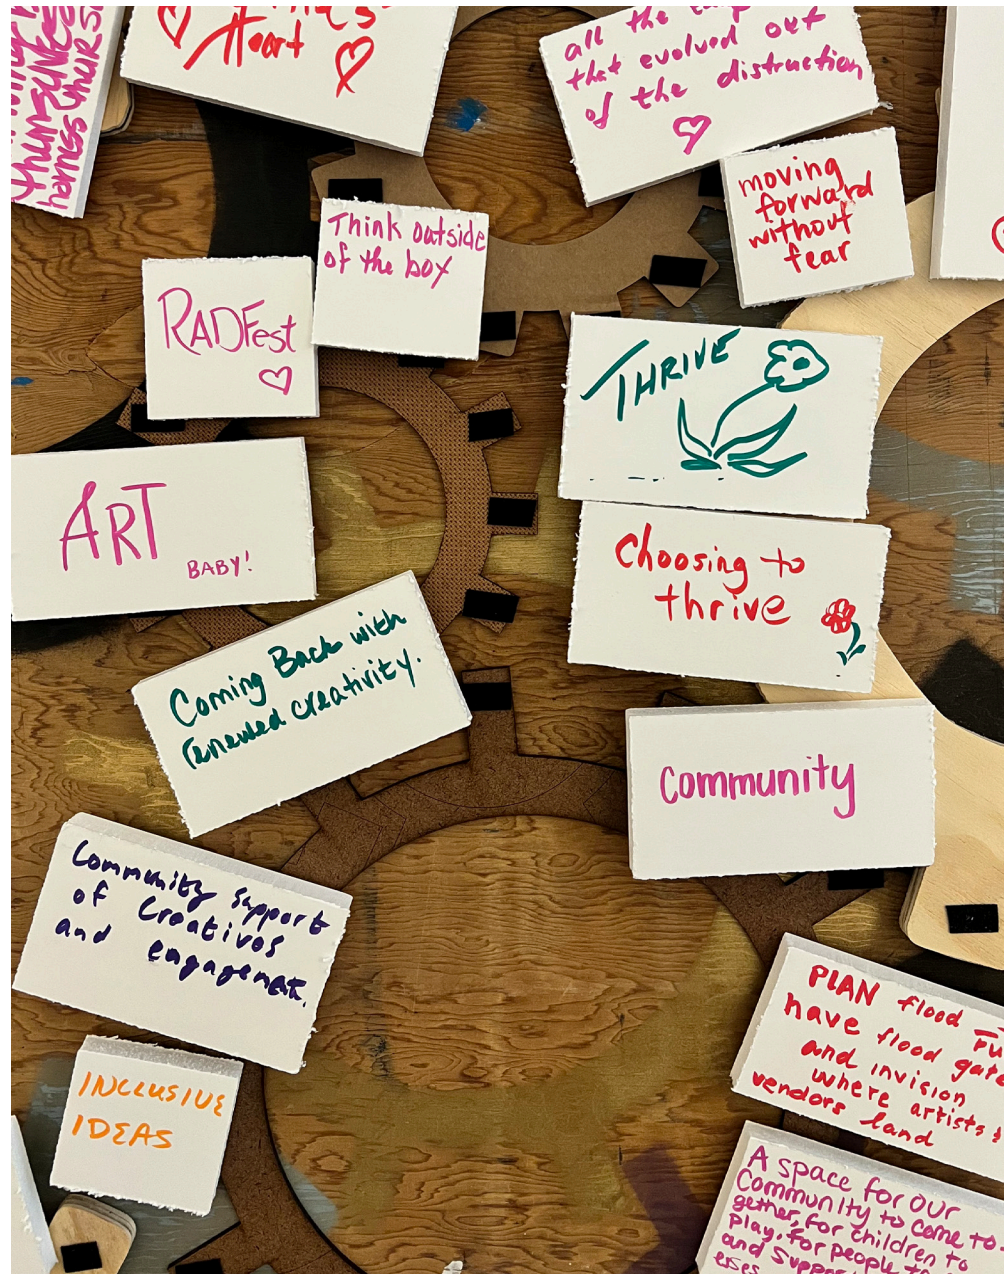 Heart
all the
that evolved out
of the distruction
thumselves
harness
moving
forward
without
fear
Think outside
of the box
RADFest
THRIVE
ART
BABY!
Choosing to
thrive
Coming Back with
renewed creativity.
Community
Community Support
of Creatives
and engagement.
PLAN flood
have flood gate
and invision
where artists &
vendors land
INCLUSIVE
IDEAS
A space for our
Community to come to-
gether, for children to
play, for people
and